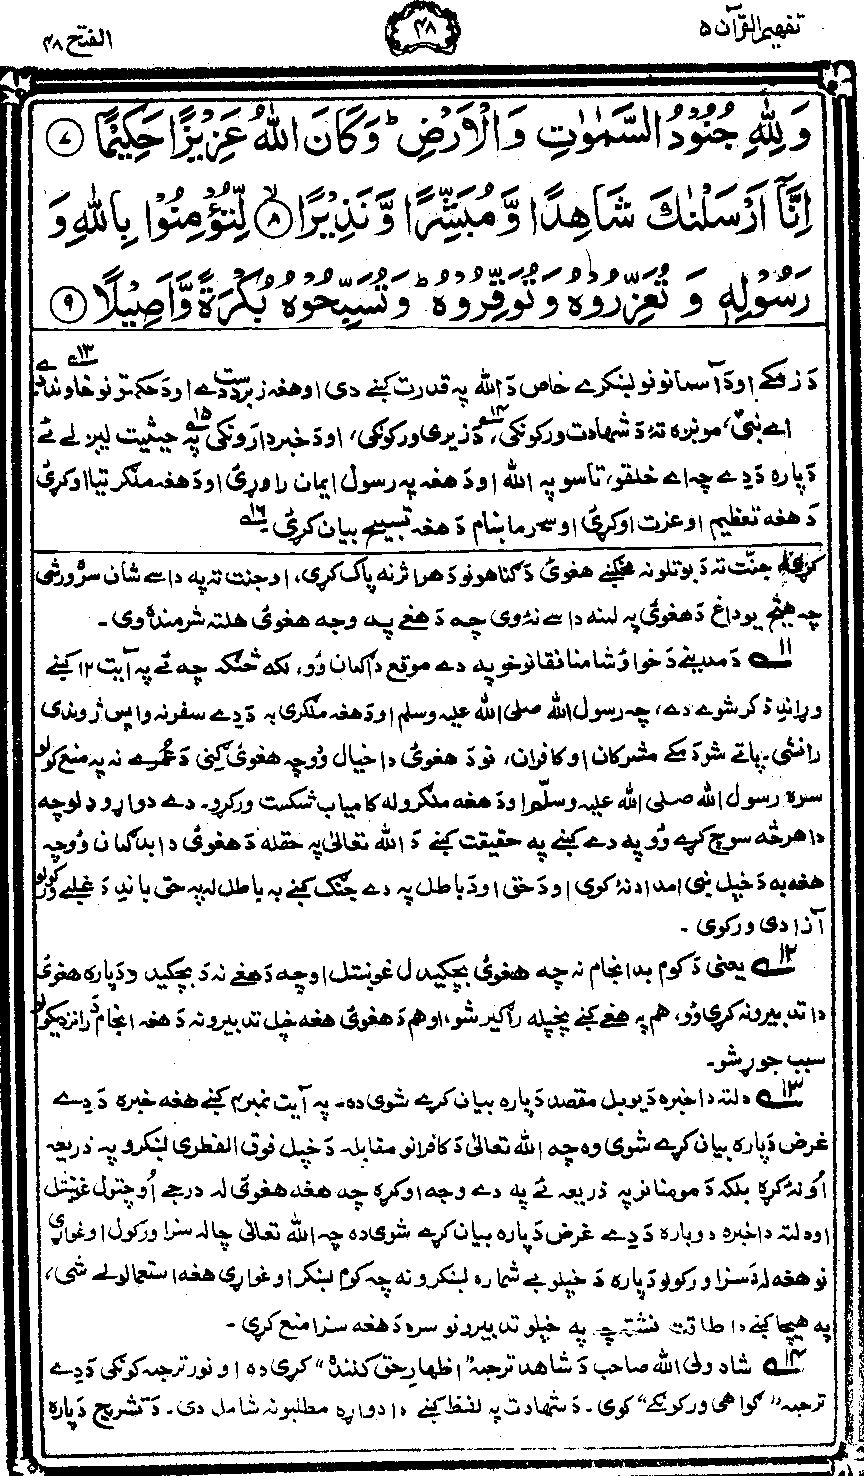 تفهیم القرآن ۵
۴۸
الفتح ۴۸
وَلِلّٰهِ جُنُوْدُ السَّمٰوٰتِ وَالْاَرْضِ ؕ وَكَانَ اللّٰهُ عَزِيْزًا حَكِيْمًا ﴿۷﴾
اِنَّآ اَرْسَلْنٰكَ شَاهِدًا وَّمُبَشِّرًا وَّنَذِيْرًا ﴿۸﴾ لِّتُؤْمِنُوْا بِاللّٰهِ وَ
رَسُوْلِهٖ وَ تُعَزِّرُوْهُ وَتُوَقِّرُوْهُ ؕ وَتُسَبِّحُوْهُ بُكْرَةً وَّاَصِيْلًا ﴿۹﴾
دَ زمکے او دَ آسمانونو لښکرے خاص دَ الله په قدرت کښے دی او هغه زبردست دے او دَ حکمتونو خاوند دے ۱۳
اے نبیؐ، مونږه تۀ دَ شهادت ورکونکی ۱۴، دَ زیری ورکونکی، او دَ خبردارونکی ۱۵ په حیثیت لیږلے ئے
دَپاره دَ دِے چه اے خلقو، تاسو په الله او دَ هغه په رسول ایمان راوړئ او دَ هغه ملګرتیا اوکړئ
دَ هغه تعظیم او عزت اوکړئ او سحر ماښام دَ هغه تسبیح بیان کړئ ۱۶
کړی، جنّت ته دَ بوتلونه هغوئ دَ ګناهونو دَ هر اثر نه پاک کړی، او جنت ته په داسے شان سرهٔ ورشی
چه هیڅ یو داغ دَ هغوئ په لمنه داسے نۀ وی چه دَ هغے په وجه هغوئ هلته شرمندهٔ وی۔
۱۱ دَ مدینے دَ خوا وٗ شا منافقانو خو په دے موقع دا ګمان وٗو، لکه څنګه چه ئے په آیت ۱۲ کښے
وړاندِ ذکر شوے دے، چه رسول الله صلی الله علیه وسلم او دَ هغه ملګری به دَ دِے سفر نه واپس ژوندی
رانشی۔ پاتے شو دَ مکے مشرکان او کافران، نو دَ هغوئ دا خیال وٗو چه هغوئ دَ عُمرے نه په منع کولو
سره رسول الله صلی الله علیه وسلم او دَ هغه ملګرو له کامیاب شکست ورکړو۔ دے دواړو ډلو چه
دا هر څه سوچ کړے وٗو په دے کښے په حقیقت کښے دَ الله تعالیٰ په حقله دَ هغوئ دا بد ګمان وٗو چه
هغه به دَ خپل نبی امداد نۀ کوی او دَ حق او دَ باطل په دے جنګ کښے به باطل له په حق باندِ دَ غلبے ورکولو
آزادی ورکوی۔
۱۲ یعنی دَ کوم بد انجام نه چه هغوئ بچ کیدل غوښتل او چه دَ هغے نه دَ بچ کیدو دَپاره هغوئ
دا تدبیرونه کړی وٗو، هم په هغے کښے پخپله راګیر شو، او هم دَ هغوئ هغه خپل تدبیرونه دَ هغه انجام دَ رانزدیکولو
سبب جوړ شو۔
۱۳ دلته دا خبره دَ یو بل مقصد دَپاره بیان کړے شوی ده۔ په آیت نمبر ۴ کښے هغه خبره دَ دِے
غرض دَپاره بیان کړے شوی وه چه الله تعالیٰ دَ کافرانو مقابله دَ خپل فوق الفطری لښکرو په ذریعه
اونۀ کړه بلکه دَ مومنانو په ذریعه ئے په دے وجه اوکړه چه هغه هغوئ له درجے اُوچتول غوښتل
او دلته دا خبره دوباره دَ دِے غرض دَپاره بیان کړے شوی ده چه الله تعالیٰ چاله سزا ورکول اوغواړی
نو هغه له دَ سزا ورکولو دَپاره دَ خپلو بے شماره لښکرو نه چه کوم لښکر اوغواړی هغه استعمالولے شی،
په هیچا کښے دا طاقت نشته چه په خپلو تدبیرونو سره دَ هغه سزا منع کړی۔
۱۴ شاه ولی الله صاحب دَ شاهد ترجمه "اظهار حق کننده" کړی ده او نور ترجمه کونکی دَ دِے
ترجمه "ګواهی ورکونکے" کوی۔ دَ شهادت په لفظ کښے دا دواړه مطلبونه شامل دی۔ دَ تشریح دَپاره